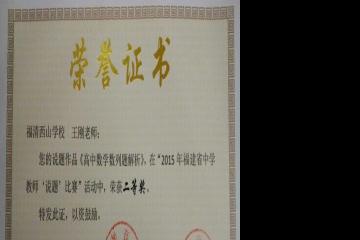 荣誉证书
福清西山学校 王刚老师:
您的说题作品《高中数学数列题解析》，在“2015年福建省中学
教师‘说题’比赛”活动中，荣获二等奖。
特发此证，以资鼓励。